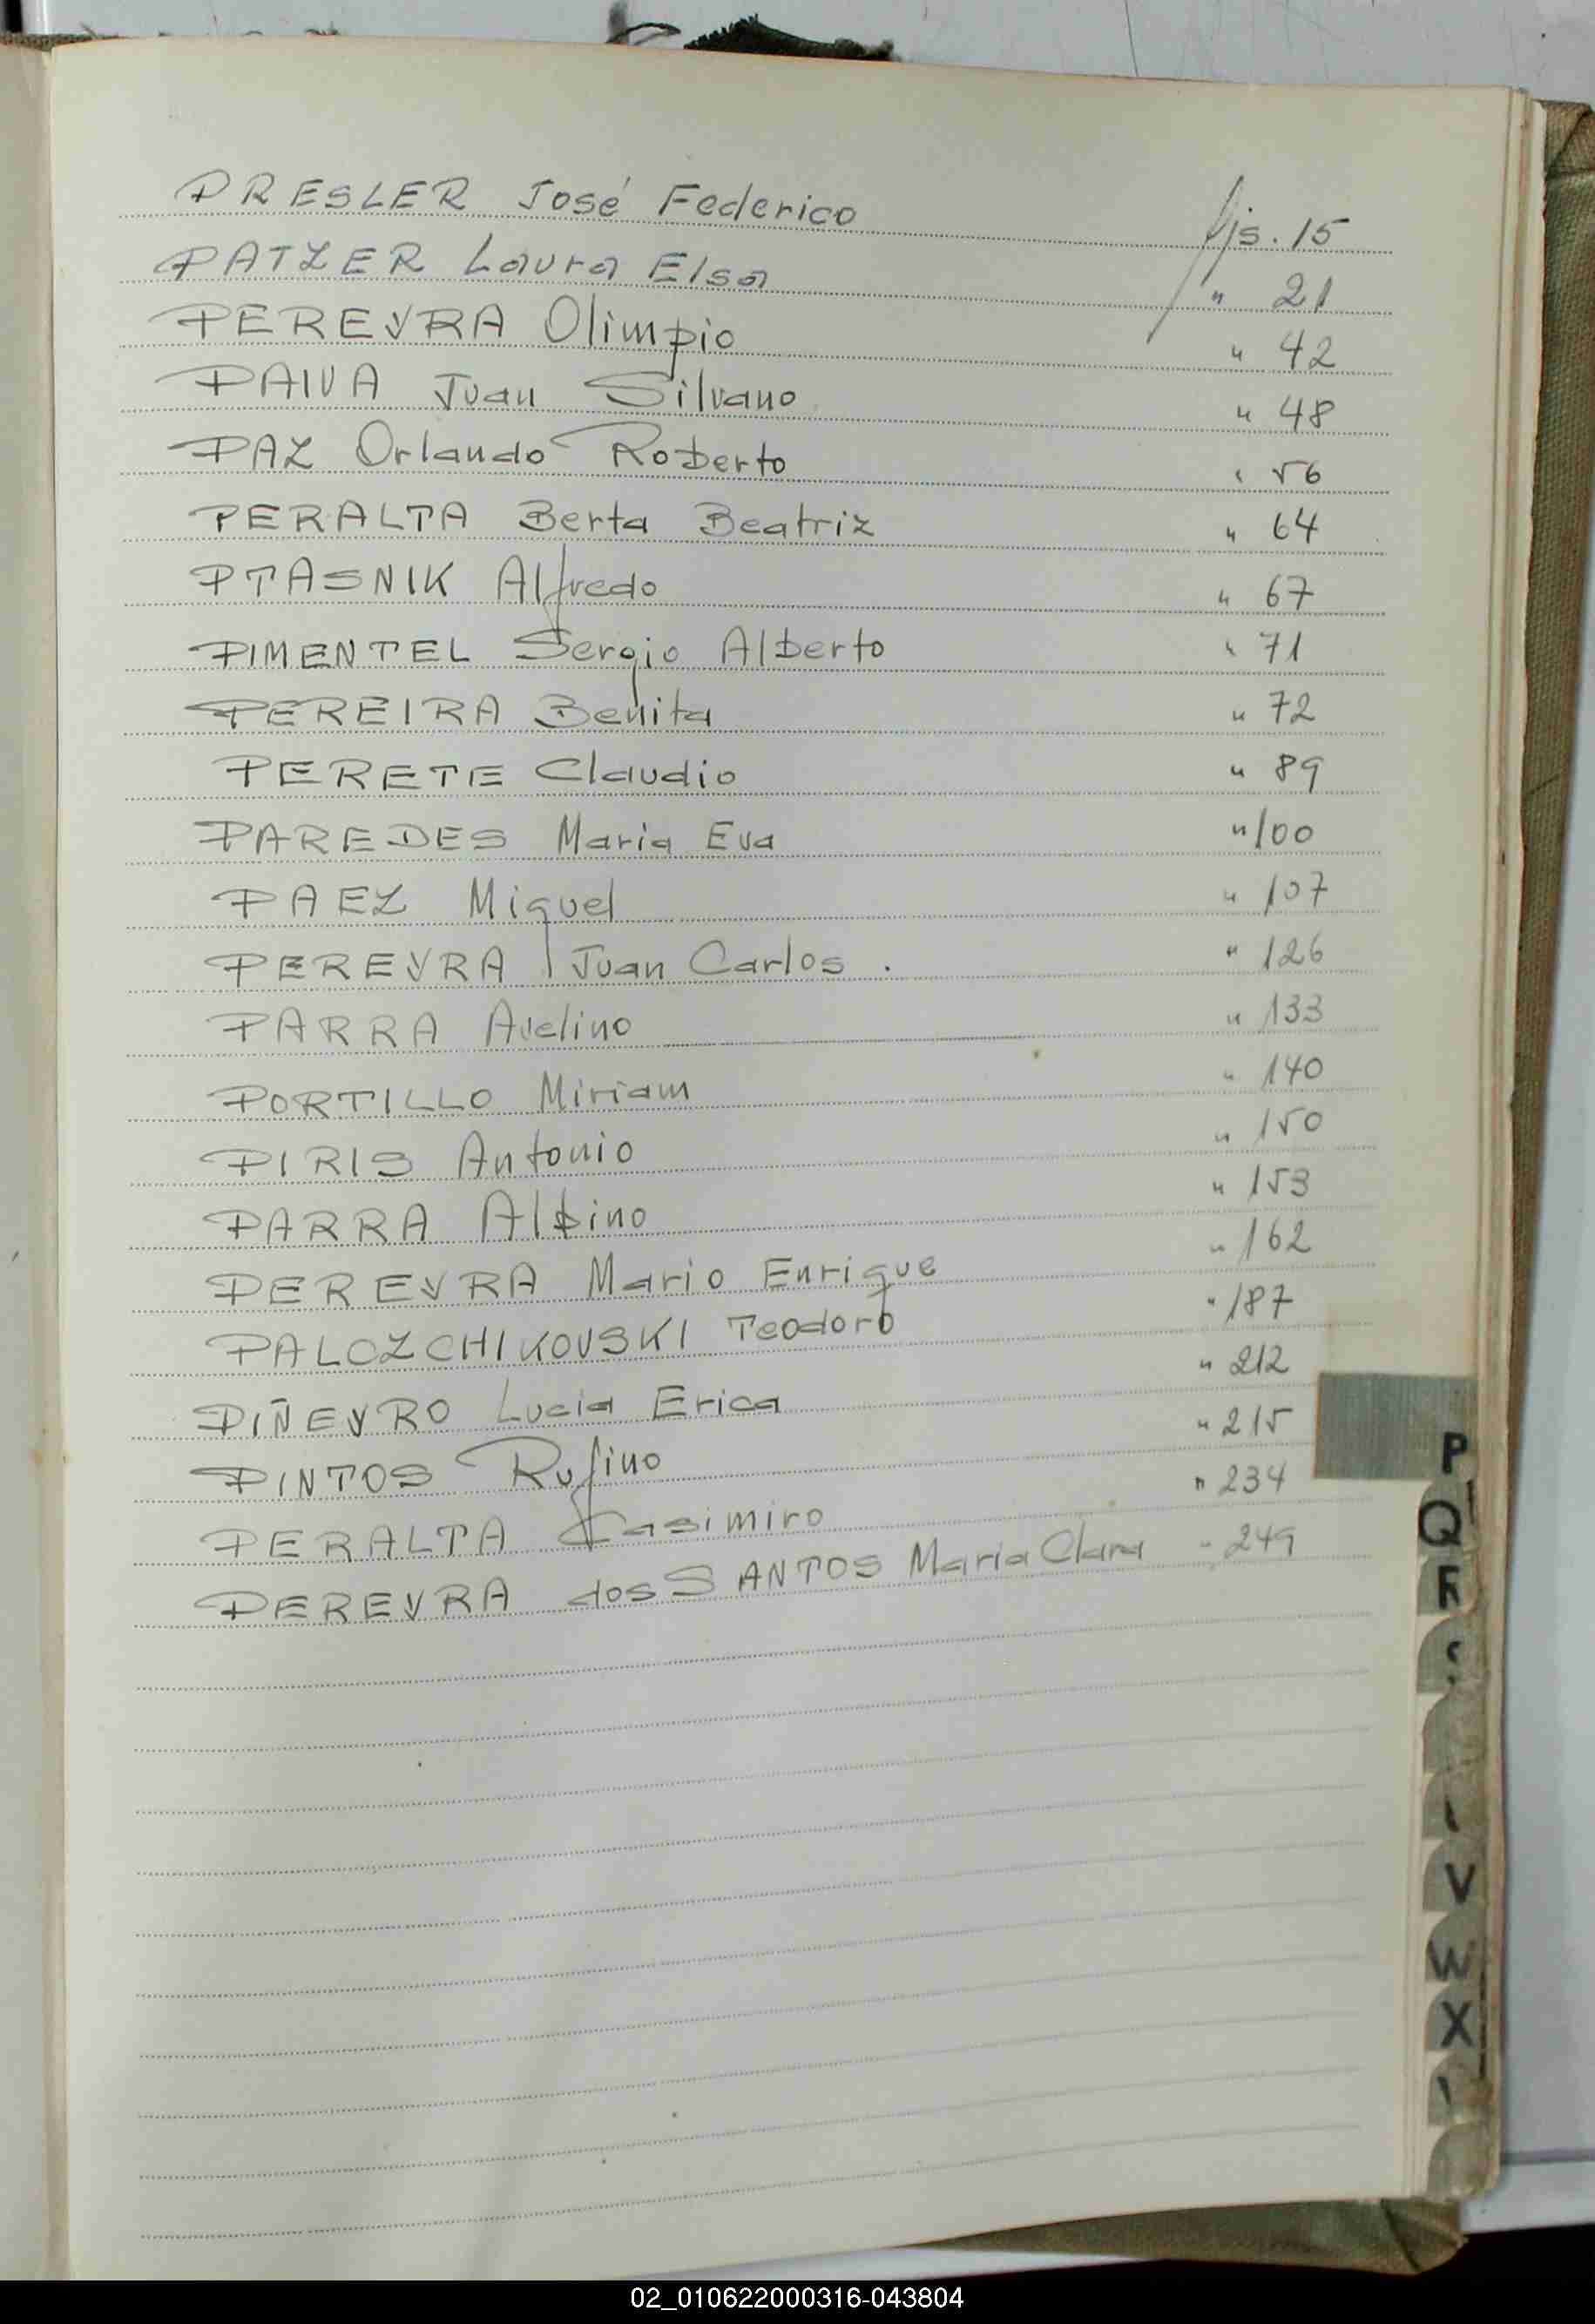 PRESLER José Federico fjs. 15
PATZER Laura Elsa " 21
PEREYRA Olimpio " 42
PAIVA Juan Silvano " 48
PAZ Orlando Roberto " 56
PERALTA Berta Beatriz " 64
PTASNIK Alfredo " 67
PIMENTEL Sergio Alberto " 71
PEREIRA Benita " 72
PERETE Claudio " 89
PAREDES Maria Eva " 100
PAEZ Miguel " 107
PEREYRA Juan Carlos . " 126
PARRA Avelino " 133
PORTILLO Miriam " 140
PIRIS Antonio " 150
PARRA Albino " 153
PEREYRA Mario Enrique " 162
PALCZCHIKOVSKI Teodoro " 187
PIÑEYRO Lucia Erica " 212
PINTOS Rufino " 215
PERALTA Casimiro " 234
PEREYRA dos SANTOS Maria Clara " 249
P
Q
R
S
V
W
X
02_010622000316-043804